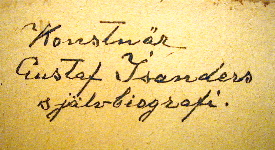 Konstnär
Gustaf Isanders
självbiografi.